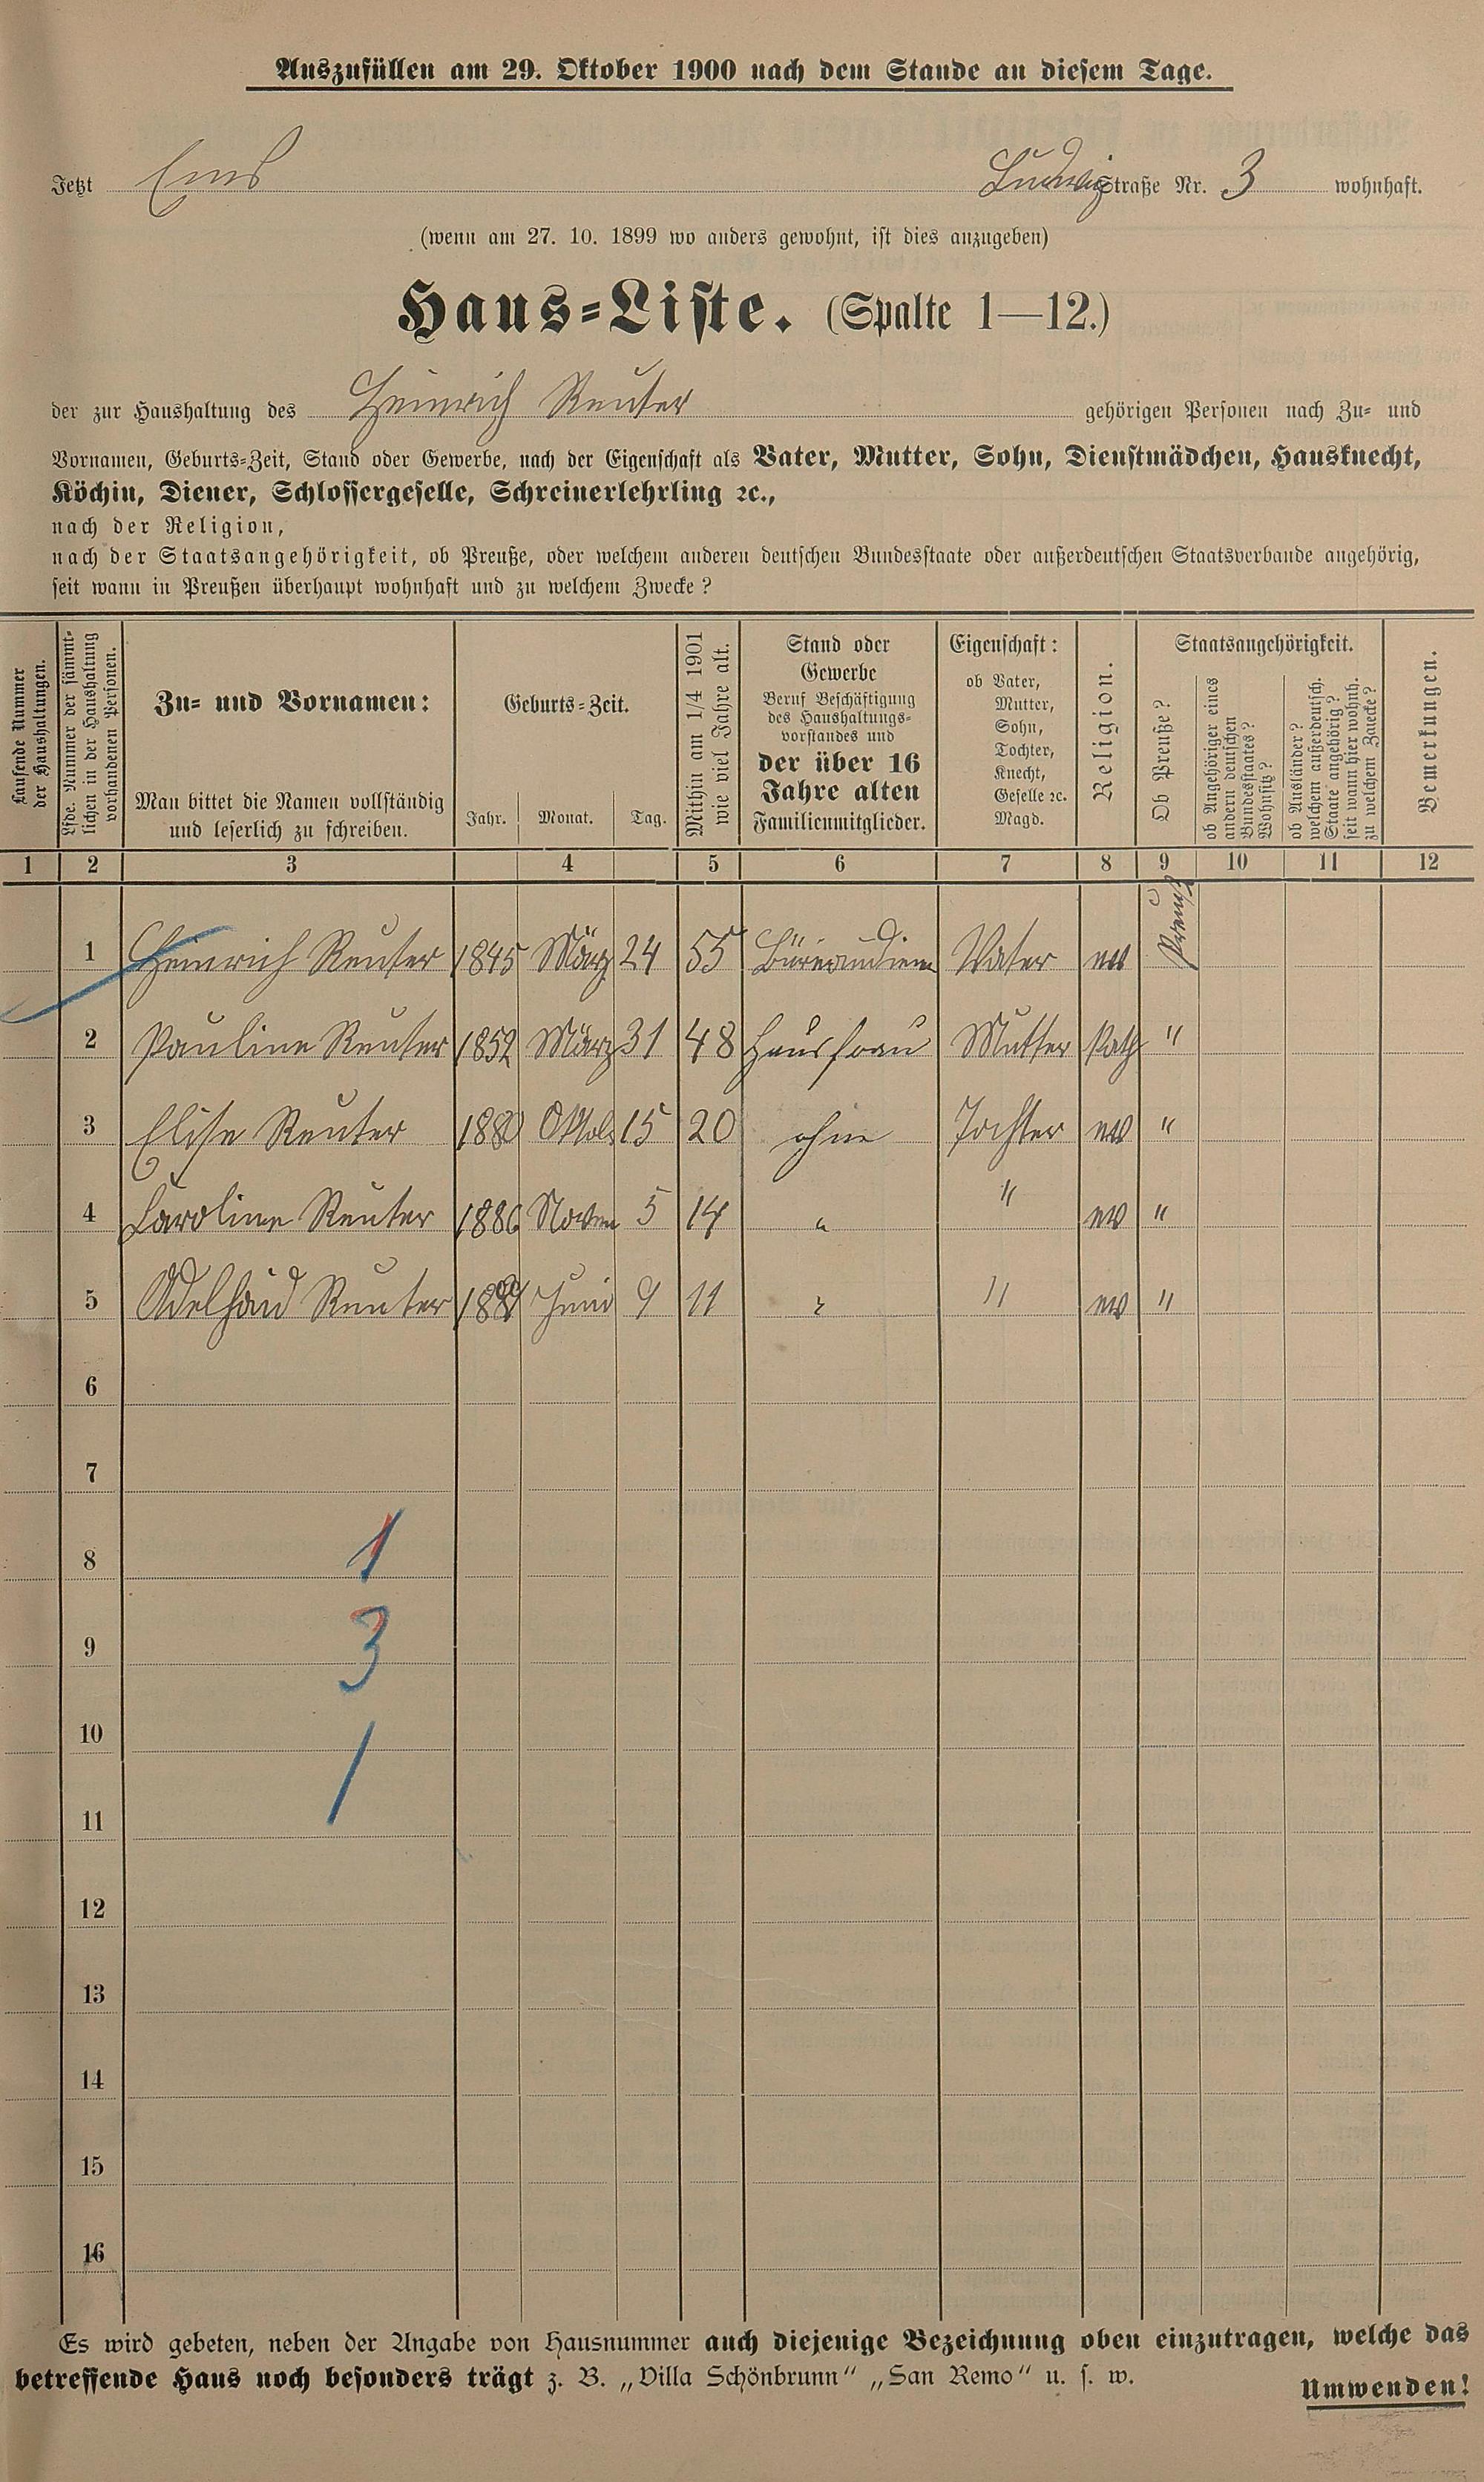 Auszufüllen am 29. Oktober 1900 nach dem Stande an diesem Tage.
Jetzt Ems Ludwigstraße Nr. 3 wohnhaft.
(wenn am 27. 10. 1899 wo anders gewohnt, ist dies anzugeben)
Haus-Liste. (Spalte 1—12.)
der zur Haushaltung des Heinrich Reuter gehörigen Personen nach Zu- und
Vornamen, Geburts-Zeit, Stand oder Gewerbe, nach der Eigenschaft als Vater, Mutter, Sohn, Dienstmädchen, Hausknecht,
Köchin, Diener, Schlossergeselle, Schreinerlehrling ꝛc.,
nach der Religion,
nach der Staatsangehörigkeit, ob Preuße, oder welchem anderen deutschen Bundesstaate oder außerdeutschen Staatsverbande angehörig,
seit wann in Preußen überhaupt wohnhaft und zu welchem Zwecke?
Laufende Nummer
der Haushaltungen.
Lfde. Nummer der sämmt-
lichen in der Haushaltung
vorhandenen Personen.
Zu- und Vornamen:
Man bittet die Namen vollständig
und leserlich zu schreiben.
Geburts-Zeit.
Jahr. Monat. Tag.
Mithin am 1/4 1901
wie viel Jahre alt.
Stand oder
Gewerbe
Beruf Beschäftigung
des Haushaltungs-
vorstandes und
der über 16
Jahre alten
Familienmitglieder.
Eigenschaft:
ob Vater,
Mutter,
Sohn,
Tochter,
Knecht,
Geselle ꝛc.
Magd.
Religion.
Staatsangehörigkeit.
Ob Preuße?
ob Angehöriger eines
andern deutschen
Bundesstaates?
Wohnsitz?
ob Ausländer?
welchem außerdeutsch.
Staate angehörig?
seit wann hier wohnh.
zu welchem Zwecke?
Bemerkungen.
1 2 3 4 5 6 7 8 9 10 11 12
1 Heinrich Reuter 1845 März 24 55 Büreaudiener Vater ev
2 Pauline Reuter 1852 März 31 48 Hausfrau Mutter Kath "
3 Elise Reuter 1880 Oktob 15 20 ohne Tochter ev "
4 Caroline Reuter 1886 Novem 5 14 " " ev "
5 Adelhaid Reuter 1889 Juni 9 11 " " ev "
6
7
8 1
9 3
10
11 1
12
13
14
15
16
Es wird gebeten, neben der Angabe von Hausnummer auch diejenige Bezeichnung oben einzutragen, welche das
betreffende Haus noch besonders trägt z. B. „Villa Schönbrunn" „San Remo" u. s. w.
Umwenden!